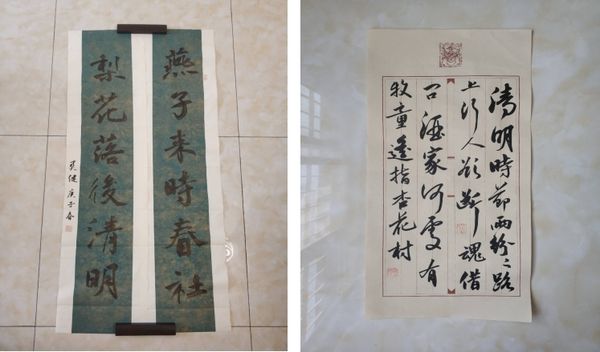 燕子来時春社
梨花落後清明
健庚子春
清明時節雨紛々路
上行人欲断魂借
问酒家何處有
牧童遥指杏花村